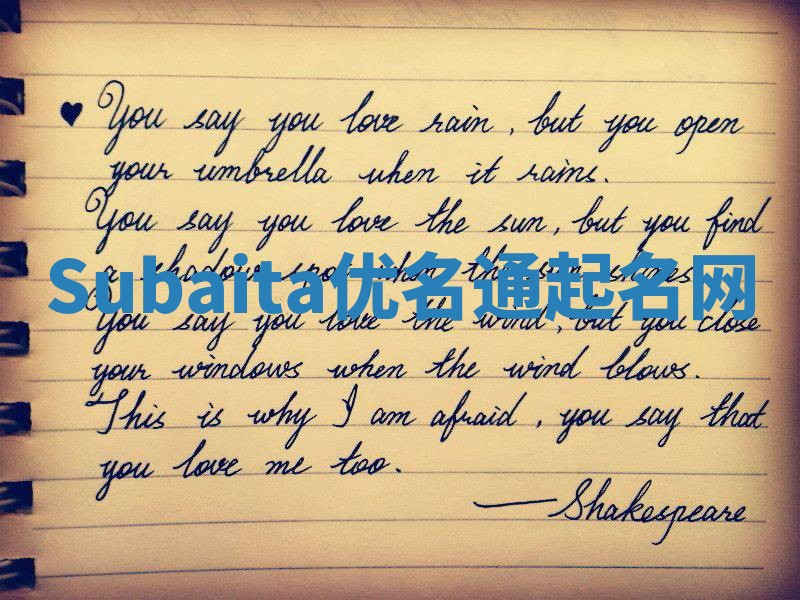 ♥ You say you love rain, but you open
your umbrella when it rains.
You say you love the sun, but you find
a shadow spot when the sun shines.
Subaita优名通起名网
You say you love the wind, but you close
your windows when the wind blows.
This is why I am afraid, you say that
you love me too.
— Shakespeare